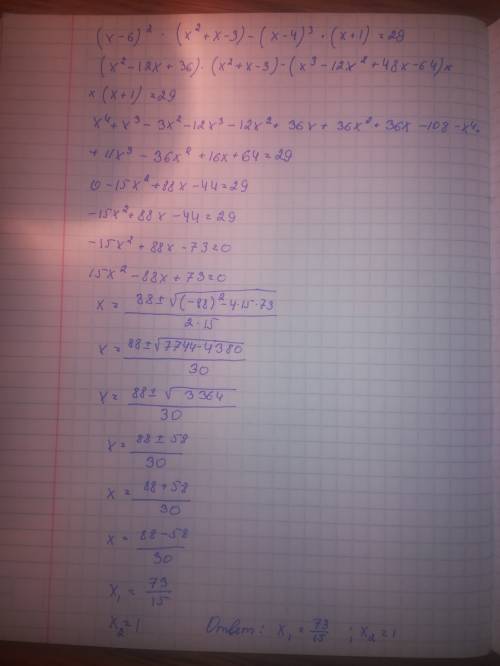 (x-6)² · (x²+x-3)-(x-4)³ · (x+1)=29
(x²-12x+36)·(x²+x-3)-(x³-12x²+48x-64)×
×(x+1)=29
x⁴+x³-3x²-12x³-12x²+36x+36x²+36x-108-x⁴+
+11x³-36x²+16x+64=29
0-15x²+88x-44=29
-15x²+88x-44=29
-15x²+88x-73=0
15x²-88x+73=0
x=(88±√((-88)²-4·15·73))/(2·15)
x=(88±√(7744-4380))/30
x=(88±√(3364))/30
x=(88±58)/30
x=(88+58)/30
x=(88-58)/30
x₁=73/15
x₂=1 Ответ: x₁=73/15; x₂=1